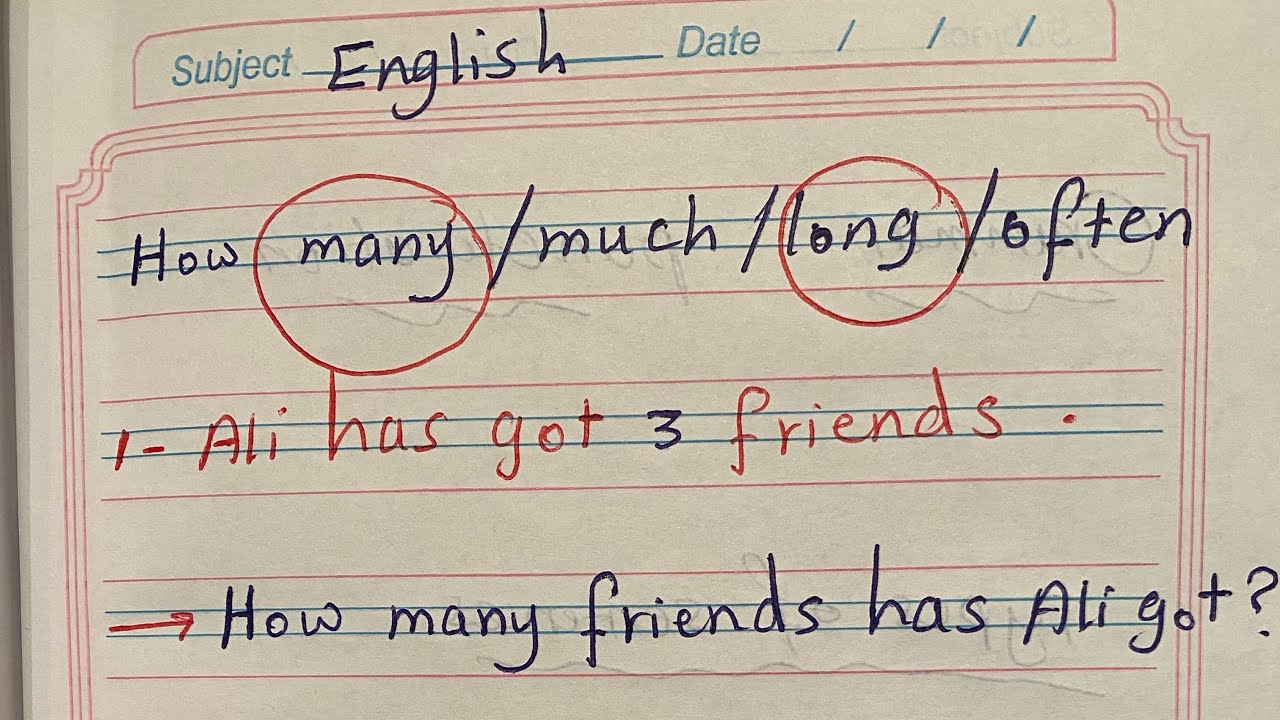 Subject English Date / / /
How many/much/long/often
1- Ali has got 3 friends.
→ How many friends has Ali got?